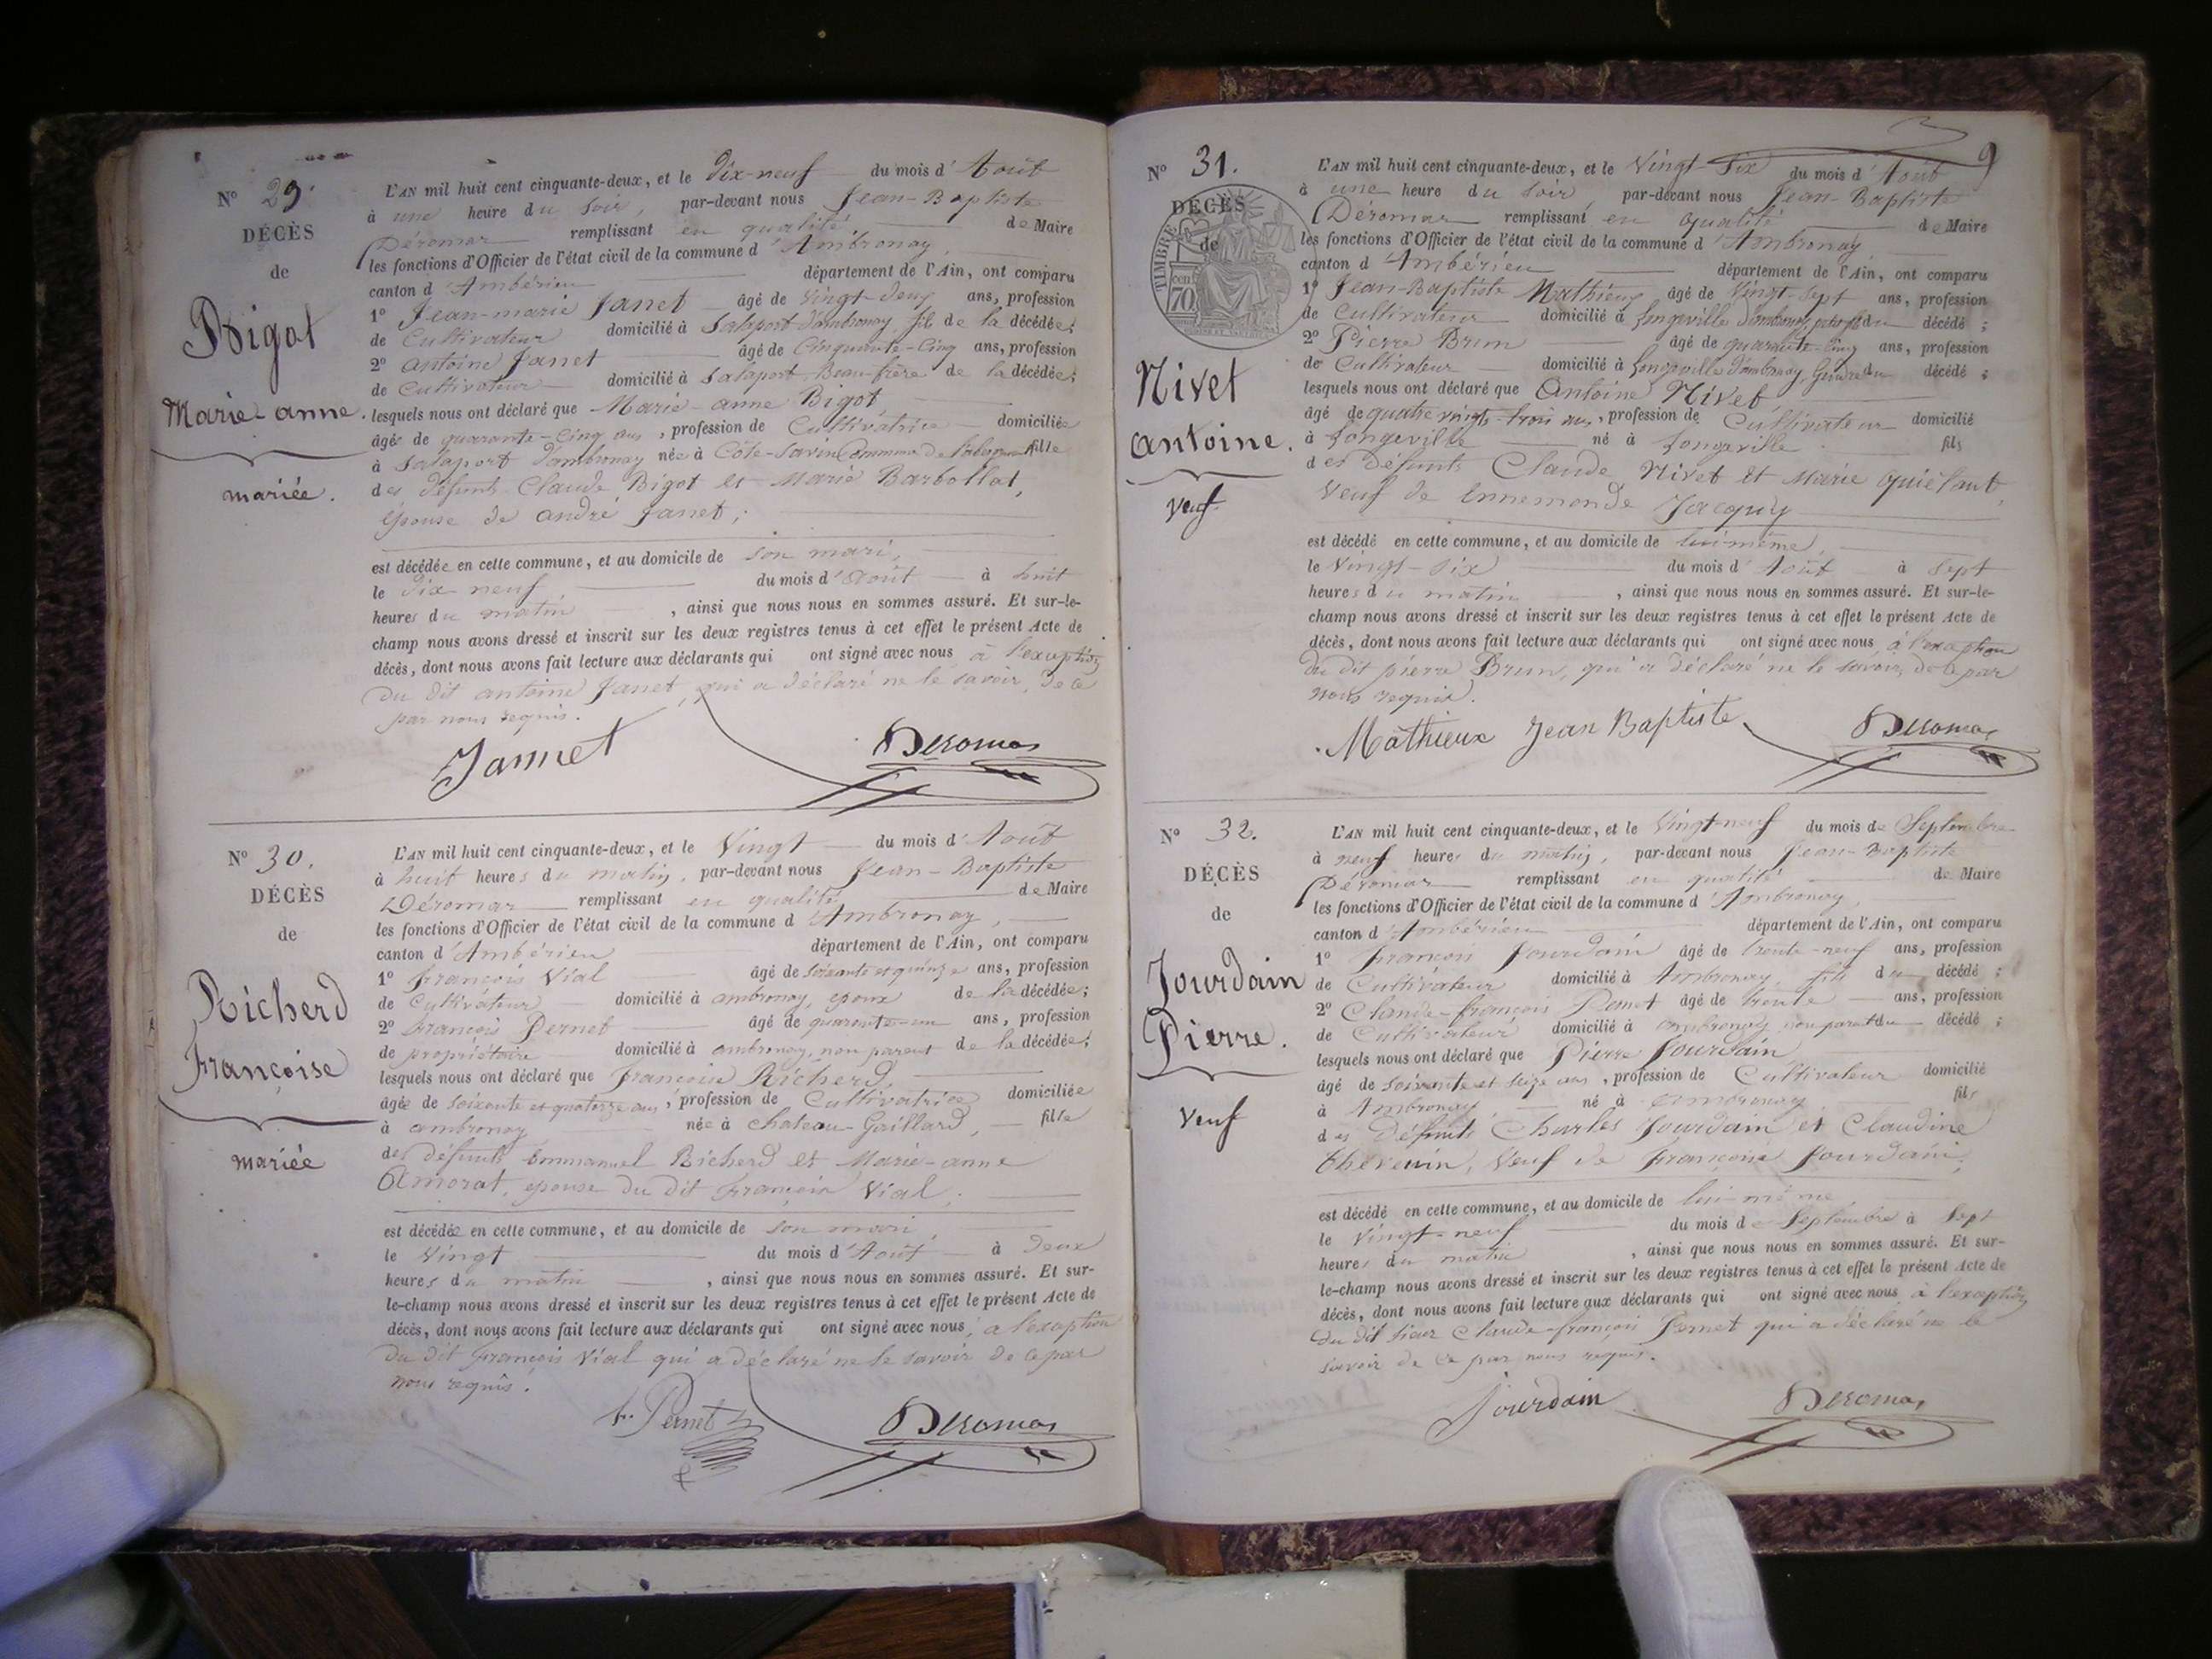 N° 29.
DÉCÈS
de
Bigot
Marie-anne.
mariée.
L'AN mil huit cent cinquante-deux, et le Dix-neuf du mois d'Août
à une heure du soir, par-devant nous Jean-Baptiste
Déromas remplissant en qualité de Maire
les fonctions d'Officier de l'état civil de la commune d'Ambronay
canton d'Ambérieu département de l'Ain, ont comparu
1° Jean-marie Janet âgé de vingt-deux ans, profession
de Cultivateur domicilié à Salaport d'ambronay, fils de la décédée;
2° antoine Janet âgé de Cinquante-Cinq ans, profession
de Cultivateur domicilié à Salaport, Beau-frère de la décédée;
lesquels nous ont déclaré que Marie-anne Bigot
âgée de quarante-Cinq ans, profession de Cultivatrice domiciliée
à Salaport d'ambronay née à Côte-Savin Commune de fille
des défunts Claude Bigot et Marie Barbollat,
épouse de andré Janet;
est décédée en cette commune, et au domicile de son mari,
le dix neuf du mois d'Août à huit
heures du matin, ainsi que nous nous en sommes assuré. Et sur-le-
champ nous avons dressé et inscrit sur les deux registres tenus à cet effet le présent Acte de
décès, dont nous avons fait lecture aux déclarants qui ont signé avec nous à l'exception
du dit antoine Janet, qui a déclaré ne le savoir, de ce
par nous requis.
Jannet Deromas
N° 30.
DÉCÈS
de
Richerd
Françoise
mariée
L'AN mil huit cent cinquante-deux, et le Vingt du mois d'Août
à huit heures du matin, par-devant nous Jean-Baptiste
Déromas remplissant en qualité de Maire
les fonctions d'Officier de l'état civil de la commune d'Ambronay,
canton d'Ambérieu département de l'Ain, ont comparu
1° François Vial âgé de soixante et quinze ans, profession
de Cultivateur domicilié à ambronay, epoux de la décédée;
2° François Pernet âgé de quarante-un ans, profession
de propriétaire domicilié à ambronay, non parent de la décédée;
lesquels nous ont déclaré que Françoise Richerd,
âgée de soixante et quatorze ans, profession de Cultivatrice domiciliée
à ambronay née à Chateau-Gaillard, fille
des défunts Emmanuel Richerd et Marie-anne
Amorat, epouse du dit François Vial;
est décédée en cette commune, et au domicile de son mari,
le Vingt du mois d'Août à Deux
heures du matin, ainsi que nous nous en sommes assuré. Et sur-
le-champ nous avons dressé et inscrit sur les deux registres tenus à cet effet le présent Acte de
décès, dont nous avons fait lecture aux déclarants qui ont signé avec nous, a l'exception
du dit François Vial qui a déclaré ne le savoir de ce par
nous requis.
f. Pernet Deromas
9
N° 31.
DÉCÈS
de
TIMBRE
cen
70
Nivet
antoine.
Veuf
L'AN mil huit cent cinquante-deux, et le Vingt-Six du mois d'Août
à une heure du soir par-devant nous Jean-Baptiste
Déromas remplissant en qualité de Maire
les fonctions d'Officier de l'état civil de la commune d'Ambronay
canton d'Ambérieu département de l'Ain, ont comparu
1° Jean-Baptiste Mathieux âgé de vingt-sept ans, profession
de Cultivateur domicilié à Longeville d'ambronay, du décédé;
2° Pierre Brun âgé de quarante-cinq ans, profession
de Cultivateur domicilié à Longeville d'ambronay, Gendre du décédé;
lesquels nous ont déclaré que Antoine Nivet
âgé de quatre vingts-trois ans, profession de Cultivateur domicilié
à Longeville né à Longeville fils
des défunts Claude Nivet et Marie
Veuf de Ennemonde Jacquy
est décédé en cette commune, et au domicile de lui-même,
le Vingt-Six du mois d'Août à Sept
heures du matin, ainsi que nous nous en sommes assuré. Et sur-le-
champ nous avons dressé et inscrit sur les deux registres tenus à cet effet le présent Acte de
décès, dont nous avons fait lecture aux déclarants qui ont signé avec nous, à l'exception
du dit pierre Brun, qui a déclaré ne le savoir, de ce par
nous requis.
Mathieux Jean Baptiste Deromas
N° 32.
DÉCÈS
de
Jourdain
Pierre.
Veuf
L'AN mil huit cent cinquante-deux, et le Vingt-neuf du mois de Septembre
à neuf heures du matin, par-devant nous Jean-Baptiste
Déromas remplissant en qualité de Maire
les fonctions d'Officier de l'état civil de la commune d'Ambronay,
canton d'Ambérieu département de l'Ain, ont comparu
1° François Jourdain âgé de trente-neuf ans, profession
de Cultivateur domicilié à Ambronay, fils du décédé;
2° Claude-françois Pernet âgé de trente ans, profession
de Cultivateur domicilié à ambronay non parent du décédé;
lesquels nous ont déclaré que Pierre Jourdain
âgé de soixante et seize ans, profession de Cultivateur domicilié
à Ambronay né à ambronay fils
des défunts Charles Jourdain et Claudine
thevenin, Veuf de Françoise Jourdain;
est décédé en cette commune, et au domicile de lui-même,
le Vingt-neuf du mois de Septembre à Sept
heures du matin, ainsi que nous nous en sommes assuré. Et sur-
le-champ nous avons dressé et inscrit sur les deux registres tenus à cet effet le présent Acte de
décès, dont nous avons fait lecture aux déclarants qui ont signé avec nous à l'exception
du dit sieur Claude-françois Pernet qui a déclaré ne le
savoir de ce par nous requis.
Jourdain Deromas